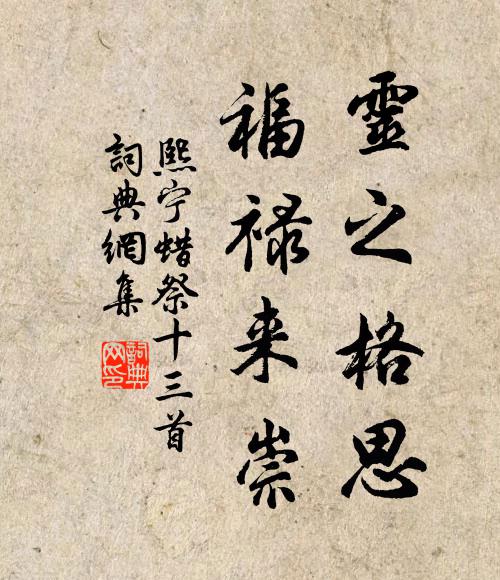 靈之格思
福禄来崇
熙宁蜡祭十三首
詞典網集
詞典网印